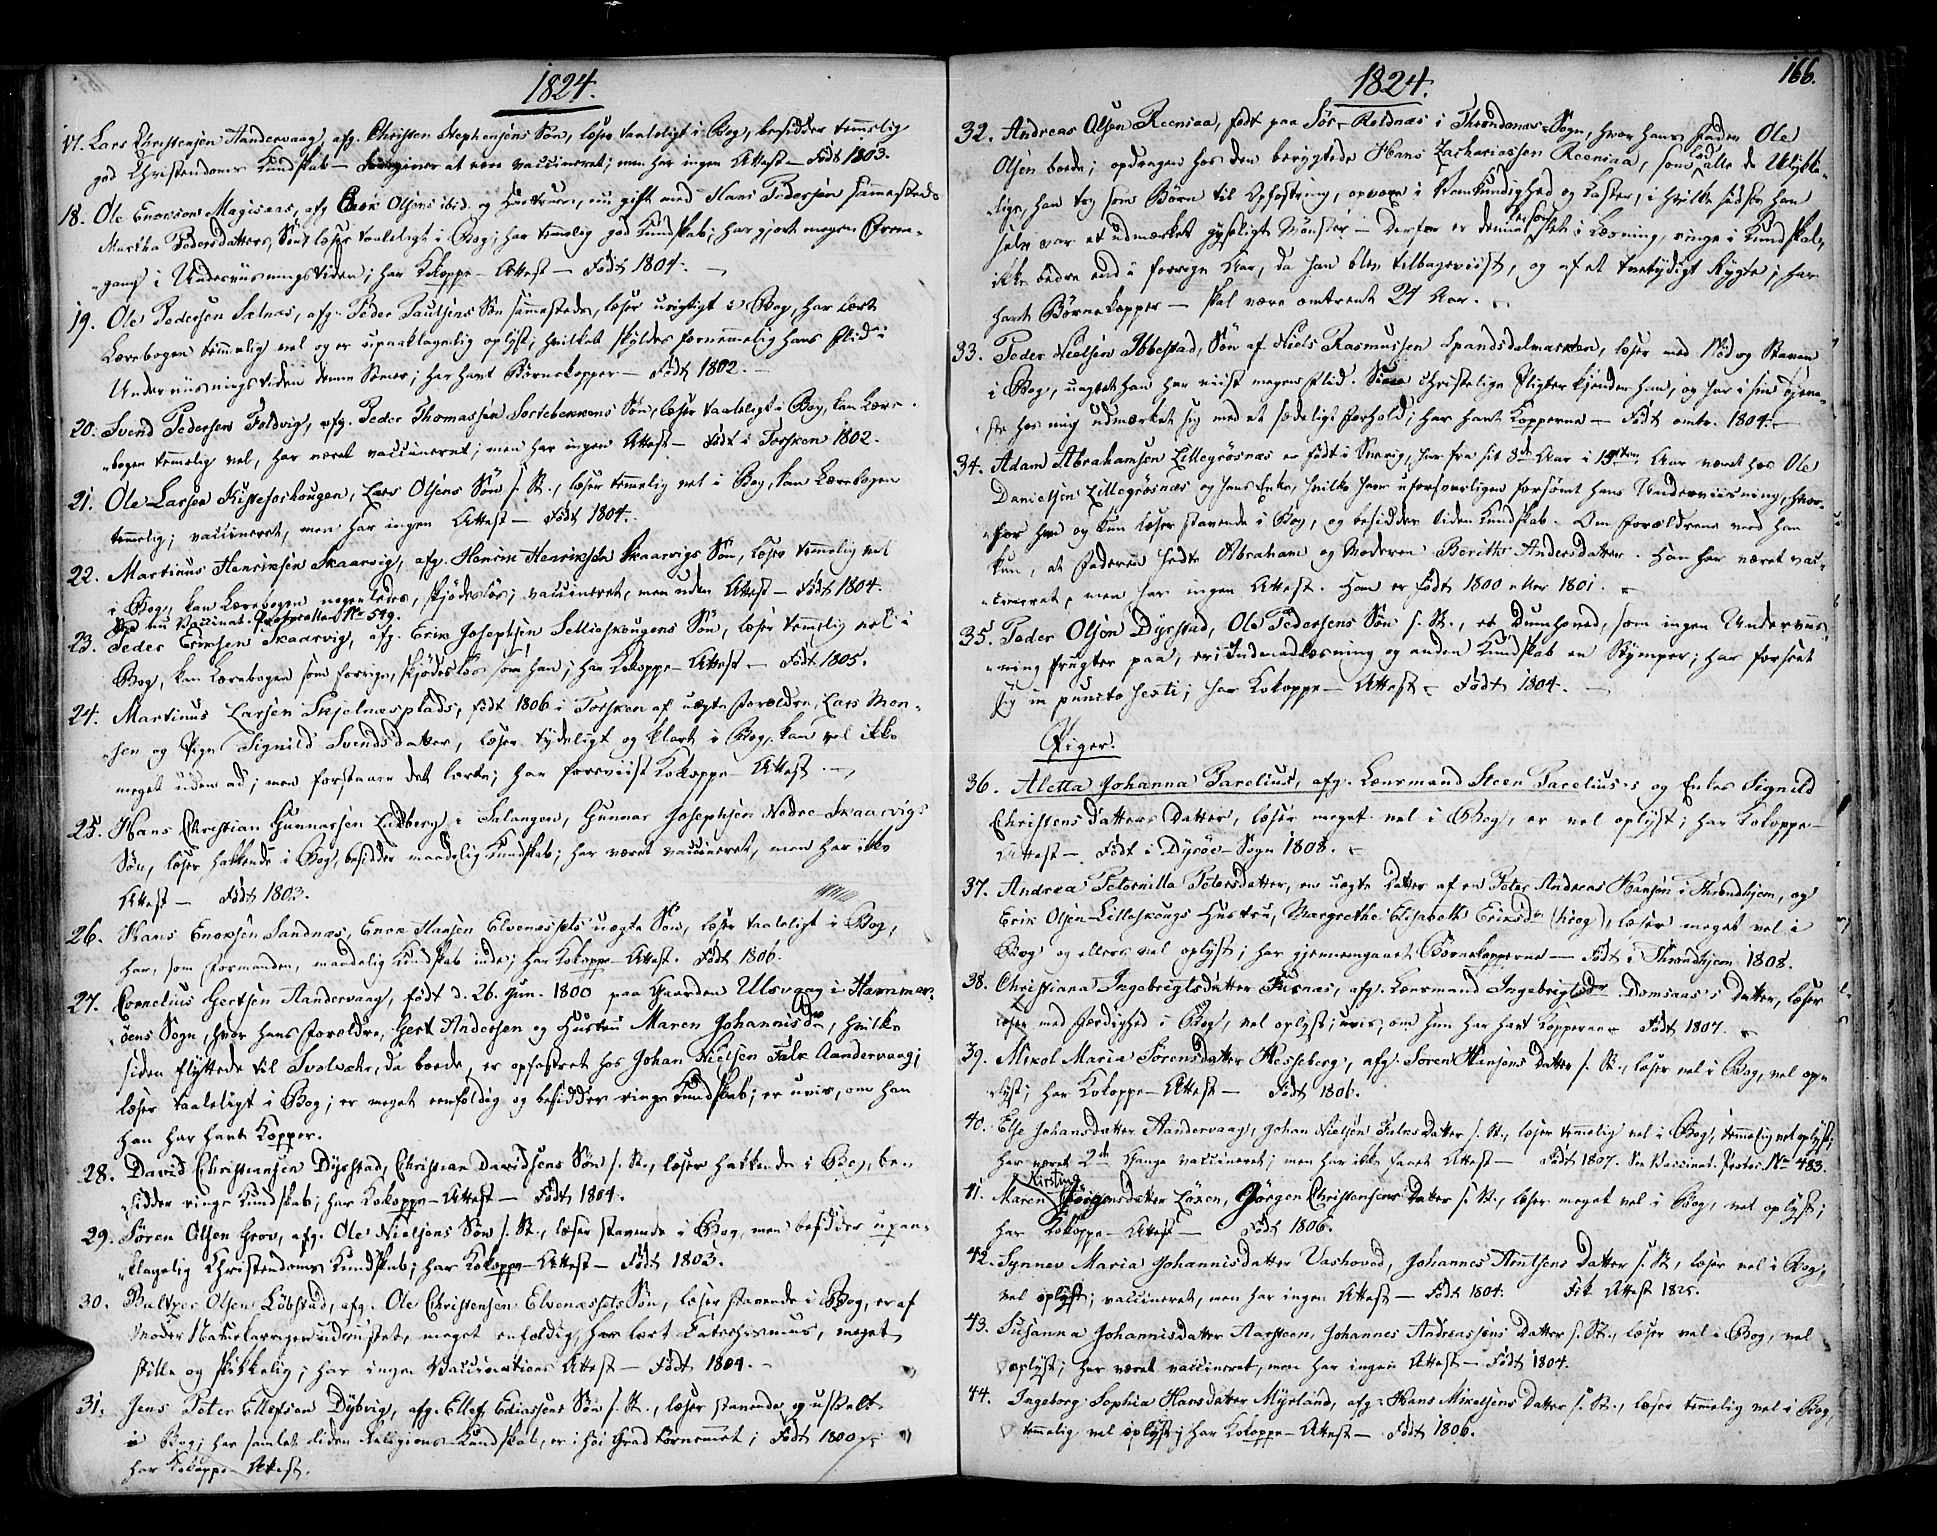 1824.
17. Lars Christensen Aandervaag, afg. Christen Stephensens Søn, læser taaleligt i Bog, besidder temmelig
god Christendoms Kundskab – foregiver at være vaccineret; men har ingen Attest – Født 1803.
18. Ole Enoksen Magisaas, afg. Enok Olsens ibid. og Hustrues, nu gift med Hans Pedersen sammesteds
Martha Pedersdatters Søn, læser taaleligt i Bog; har temmelig god Kundskab; har gjort megen Frem-
gang i Underviisningstiden; har Kokoppe-Attest – Født 1804. –
19. Ole Pedersen Sætnæs, afg. Peder Paulsens Søn sammesteds, læser urigtigt i Bog, har lært
Lærebogen temmelig vel og er upaaklagelig oplyst, hvilket skyldes fornemmelig hans Flid i
Underviisningstiden denne Somer; har havt Børnekopper – Født 1802. –
20. Svend Pedersen Foldvig, afg. Peder Thomassen Sortebekkens Søn, læser taaleligt i Bog, kan Lære-
bogen temmelig vel, har været vaccineret; men har ingen Attest – Født i Torsken 1802.
21. Ole Larsen Kistefoshougen, Lars Olsens Søn s. St., læser temmelig vel i Bog, kan Lærebogen
temmelig; vaccineret, men har ingen Attest – Født 1804.
22. Martinus Henriksen Skaarvig, afg. Henrik Henriksen Skaarvigs Søn, læser temmelig vel
i Bog, kan Lærebogen nogenledes, skjødesløs; vaccineret, men uden Attest – Født 1804.
See nu Vaccinat. Protocollen No 549.
23. Peder Eriksen Skaarvig, afg. Erik Josephsen Sellieskougens Søn, læser temmelig vel i
Bog, kan Lærebogen som forrige, skjødesløs som han; har Kokoppe-Attest – Født 1805.
24. Martinus Larsen Skjelnæsplads, født 1806 i Torsken af uægte Forældre, Lars Mon-
sen og Pige Signild Svendsdatter, læser tydeligt og klart i Bog, kan vel ikke
meget uden ad; men forstaaer det lærte; har foreviist Kokoppe-Attest. –
25. Hans Christian Gunnarsen Lundberg i Salangen, Gunnar Josephsen Nedre-Skaarvigs
Søn, læser hakkende i Bog, besidder maadelig Kundskab; har været vaccineret, men har ikke
Attest – Født 1803.
26. Hans Enoksen Sandnæs, Enok Hansen Elvenæssets uægte Søn, læser taaleligt i Bog,
har, som Formanden, maadelig Kundskab inde; har Kokoppe-Attest. Født 1806.
27. Cornelius Gertsen Aandervaag, født d. 26. Jun. 1800 paa Gaarden Ulsvaag i Hammer-
öens Sogn, hvor hans Forældre, Gert Andersen og Hustru Maren Johannisdr, hvilke
siden flyttede til Svolvær, da boede, er opfostret hos Johan Nielsen Falk Aandervaag;
læser taaleligt i Bog; er meget eenfoldig og besidder ringe Kundskab; er uvis, om han
han har havt Kopper.
28. David Christiansen Dyrstad, Christian Davidsens Søn s. St., læser hakkende i Bog, be-
sidder ringe Kundskab; har Kokoppe-Attest – Født 1804.
29. Søren Olsen Grov, afg. Ole Nielsens Søn s. St., læser stavende i Bog, men besidder upaa-
klagelig Christendoms Kundskab; har Kokoppe-Attest – Født 1803.
30. Baltzer Olsen Löbstad, afg. Ole Christensen Elvenæssets Søn, læser stavende i Bog, er af
Moder Natur karrigen udrustet, meget enfoldig, har lært Catechismus, meget
stille og skikkelig; har ingen Vaccinations Attest – Født 1804. –
31. Jens Peter Ellefsen Dybvig, afg. Ellef Eliassens Søn s. St., læser stavende og uskelt
i Bog; har samlet liden Religions-Kundskab, er i høi Grad tornemmet; Født 1800;
har Kokoppe-Attest.
1824.
166.
32. Andreas Olsen Reensaa, født paa Sör-Roldnæs i Throndenæs-Sogn, hvor hans Fader Ole
Olsen boede; opdragen hos den berygtede Hans Zachariassen Reensaa, som lod alle de Ulykke-
lige, han tog som Börn til Opfostring, opvoxe i Vankundighed og Laster, i hvilke sidste han
selv var et udmærket gyseligt Mønster – Derfor er denne Person slet i Læsning, ringe i Kundskab,
ikke bedre end i forrige Aar, da han blev tilbageviist, og af et tvetydigt Rygte; har
havt Børnekopper – skal være omtrent 24 Aar. –
33. Peder Nielsen Ibbestad, Søn af Niels Rasmussen Spandsdalmarken, læser med Nød og Staven
i Bog, uagtet han har viist megen Flid. Sine christelige Pligter kjender han, og har i sin Tjene-
ste hos mig udmærket sig med et sædeligt Forhold; har havt Kopperne – Født omtr. 1804. –
34. Adam Abrahamsen Lillegrösnæs er født i Sverrig, har fra sit 8de Aar i 15ten Aar været hos Ole
Danielsen Lillegrösnæs og hans Enke, hvilke have uforsvarligen forsømt hans Underviisning, hvor-
for han og kun læser stavende i Bog, og besidder liden Kundskab. Om Forældrene veed han
kun, at Faderen hedte Abraham og Moderen Berith Andersdatter. Han har været vac-
cineret, men har ingen Attest. Han er født 1800 eller 1801. –
35. Peder Olsen Dyrstad, Ole Pedersens Søn s. St., et Dumhoved, som ingen Underviis-
ning frugter paa, er i Indenadlæsning og anden Kundskab en Stymper; har forseet
sig in puncto sexti; har Kokoppe-Attest – Født 1804. –
Piger.
36. Aletta Johanna Parelius, afg. Lænsmand Steen Parelius's og Enkes Signild
Christensdatters Datter, læser meget vel i Bog, er vel oplyst; har Kokoppe-
Attest – Født i Dyröe-Sogn 1808. –
37. Andrea Peternilla Petersdatter, en uægte Datter af en Peter Andreas Hansen i Throndhjem, og
Erik Olsen Lilleskougs Hustru, Margrethe Elisabeth Eriksdr (Krog), læser meget vel i
Bog og ellers vel oplyst; har gjennemgaaet Børnekopperne – Født i Throndhjem 1808.
38. Christiana Ingebregtsdatter Fusnæs, afg. Lænsmand Ingebrigtsdr Domsaas's Datter, læser
læser med Færdighed i Bog, vel oplyst; uvis, om hun har havt Kopperne – Født 1807. –
39. Mikol Maria Sørensdatter Hesseberg, afg. Søren Hansens Datter s. St., læser vel i Bog, vel op-
lyst; har Kokoppe-Attest – Født 1806.
40. Else Johansdatter Aandervaag, Johan Nielsen Falks Datter s. St., læser temmelig vel i Bog, temmelig vel oplyst;
har været 2de Gange vaccineret; men har ikke faaet Attest – Født 1807. See Vaccinat. Protoc. No 483.
Kirstine
41. Maren Jörgensdatter Löxen, Jörgen Christensens Datter s. St., læser meget vel i Bog, vel oplyst;
har Kokoppe-Attest – Født 1806.
42. Synnev Maria Johannisdatter Vashoved, Johannes Arntsens Datter s. St., læser vel i Bog,
vel oplyst; vaccineret, men har ingen Attest – Født 1804. Fik Attest 1825.
43. Susanna Johannisdatter Aarsteen, Johannes Andreassens Datter s. St., læser vel i Bog, vel
oplyst; har været vaccineret, men har ingen Attest – Født 1804.
44. Ingeborg Sophia Hansdatter Myrland, afg. Hans Mikelsens Datter s. St., læser temmelig vel i Bog,
temmelig vel oplyst; har Kokoppe-Attest – Født 1806.